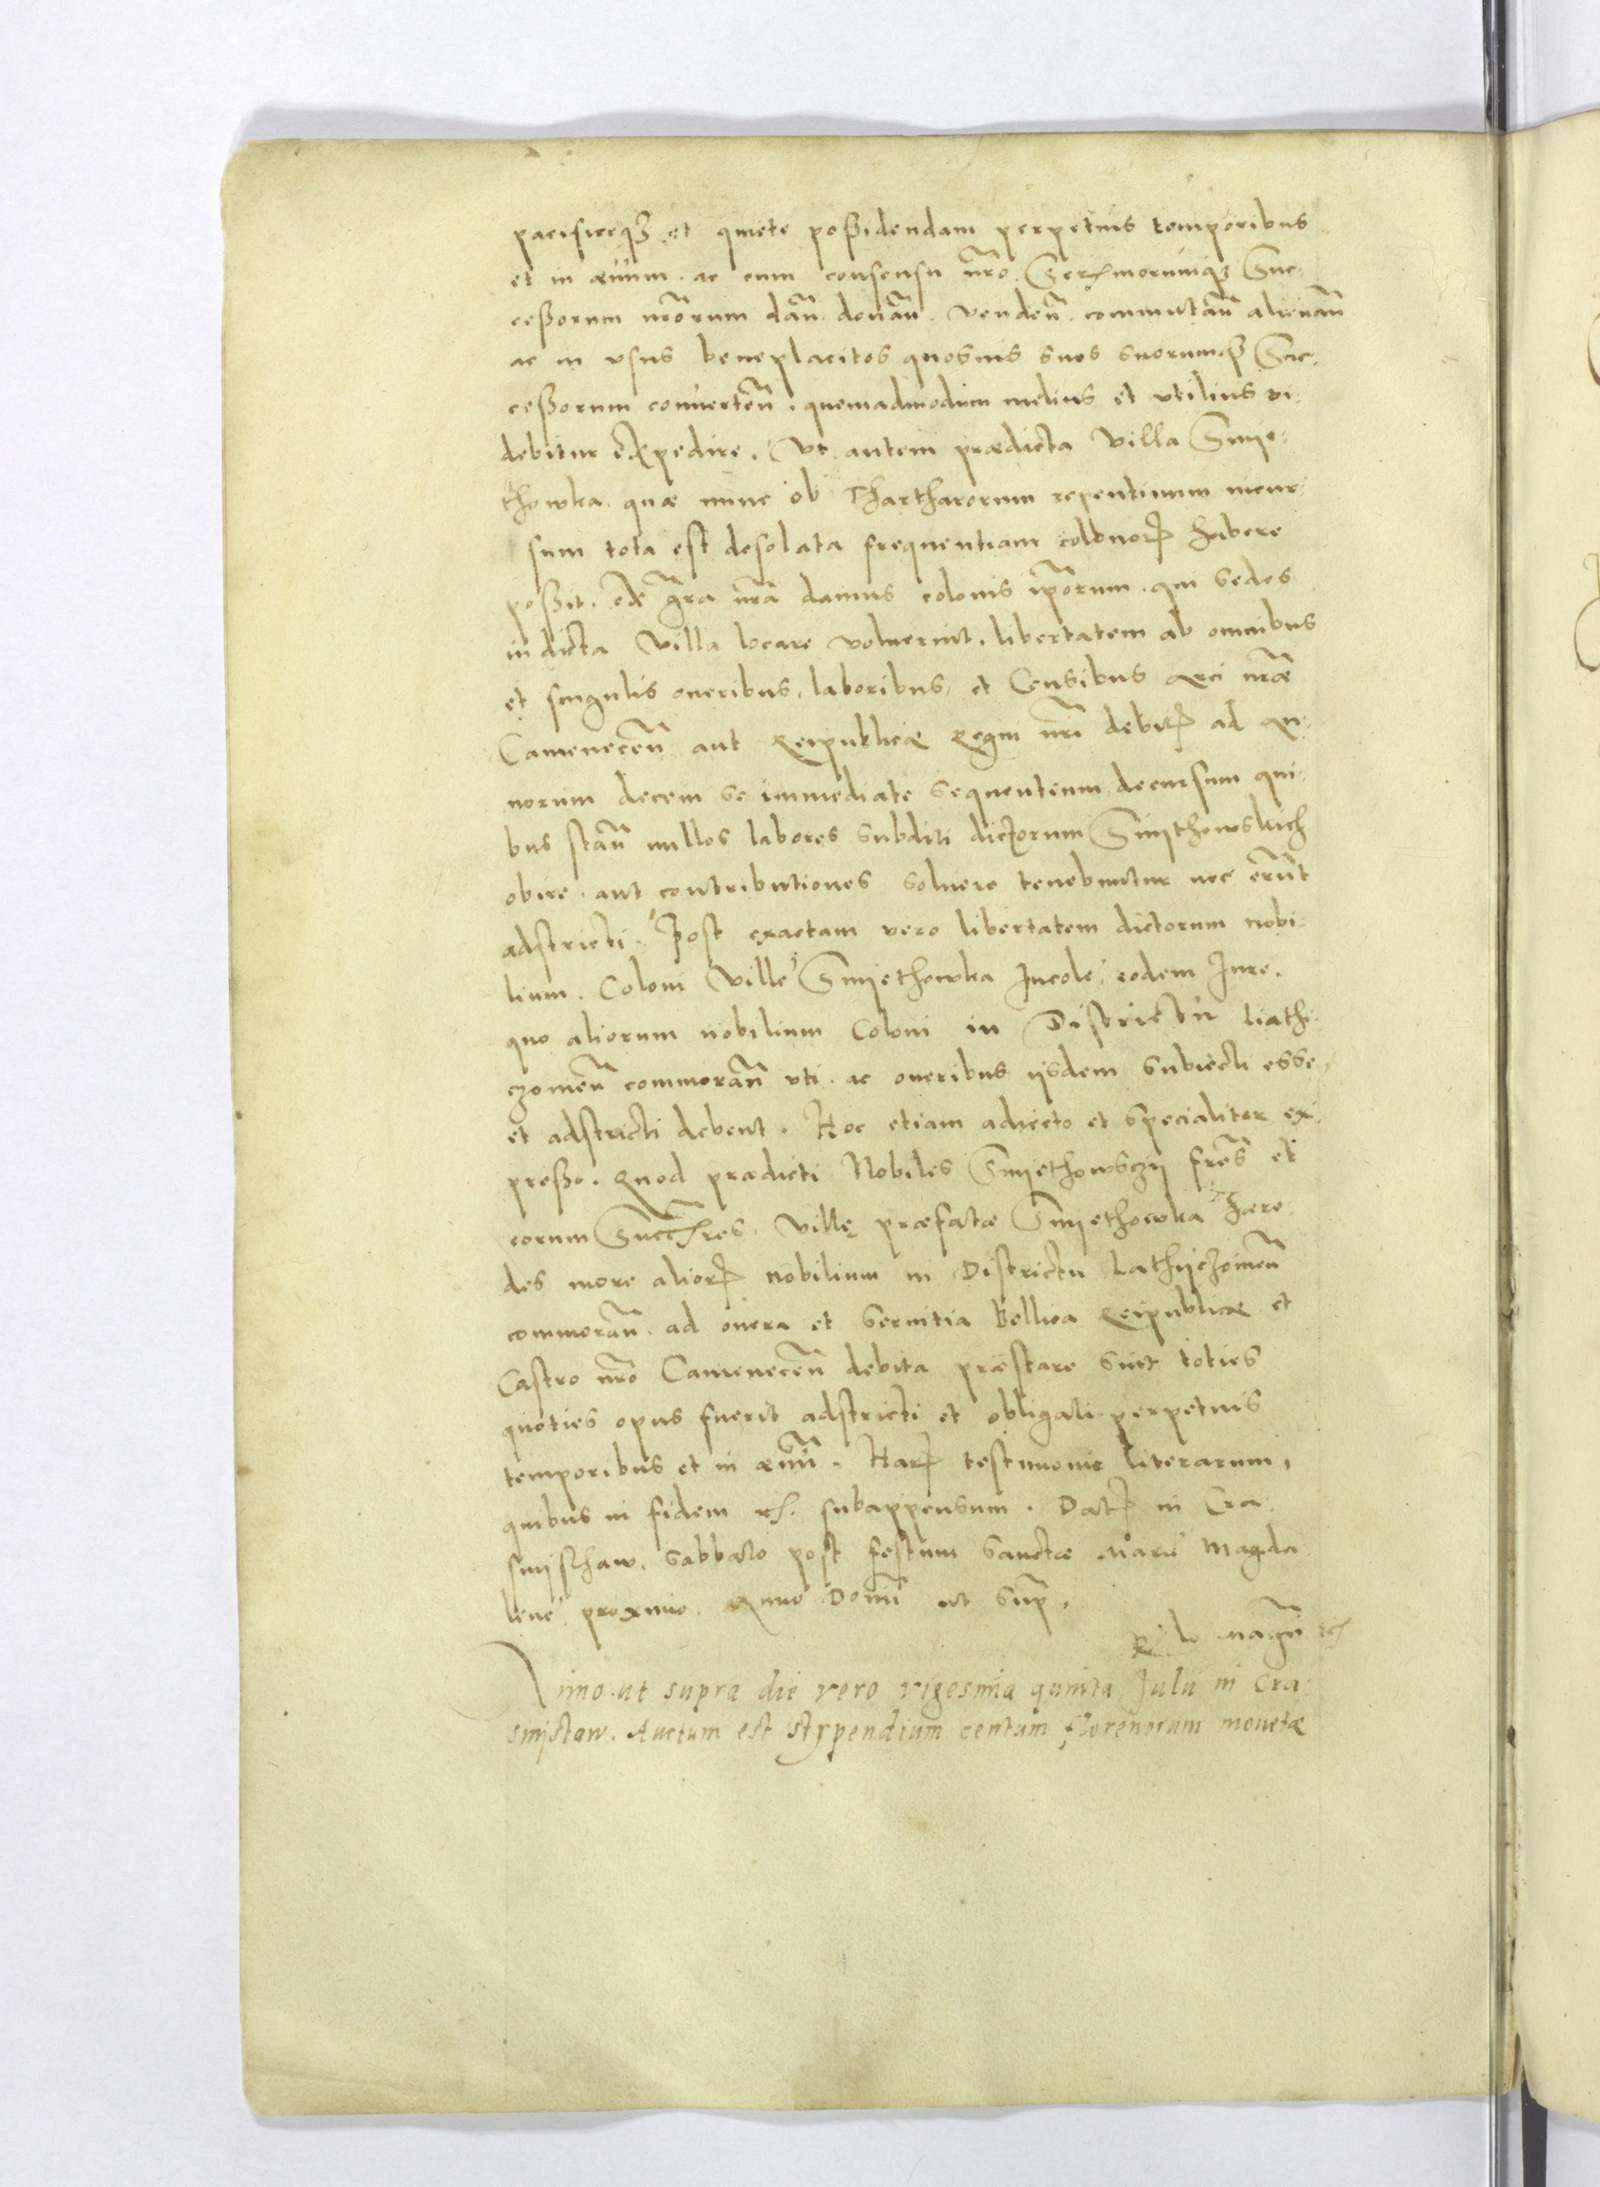 pacificeq; et quiete possidendam perpetuis temporibus
et in ævum. ac cum consensu nr̃o Ser morumq; Suc-
cessorum nr̃orum dañ. donañ. vendeñ. commutañ alienañ
ac in vsus beneplacitos quosuis suos suorumq; Suc-
cessorum conuerteñ. quemadmodum melius et vtilius vi-
debitur expedire. Vt autem prædicta Villa Smie-
thowka quæ nunc ob Thartharorum repentinum incur-
sum tota est desolata frequentiam colonorꝝ habere
possit. ex gr̃a nr̃a damus colonis ip̃orum. qui sedes
in dicta Villa locare voluerint. libertatem ab omnibus
et singulis oneribus, laboribus, et Censibus Arci nr̃æ
Cameneceñ aut Reipublicæ Regni nr̃i debitꝝ ad an-
norum decem se immediate sequentium decursum qui-
bus stañ nullos labores subditi dictorum Smythowskich
obire. aut contributiones soluere tenebuntur nec erũt
adstricti. Post exactam vero libertatem dictorum nobi-
lium. Coloni Ville Smyethowka Incole, eodem Iure.
quo aliorum nobilium Coloni in Districtu Liathi-
czowieñ commorañ vti. ac oneribus iisdem subiecti esse
et adstricti debent. Hoc etiam adiecto et specialiter ex-
presso. Quod prædicti Nobiles Smyethowsczy fr̃es et
eorum Succres. Villę præfatæ Smyethowka Hære-
des more aliorꝝ nobilium in Districtu Lathyczowieñ
commorañ. ad onera et seruitia Bellica Reipublicæ et
Castro nr̃o Cameneceñ debita præstare sint toties
quoties opus fuerit adstricti et obligati perpetuis
temporibus et in ævũ. Harꝝ testimonio literarum,
quibus in fidem subappensum. Datꝝ in Cra-
snijsthaw. Sabbato post festum Sanctæ Marie Magda-
lene proximo. Anno Domĩ ut supr.
R͂ Magci etc
Anno ut supra die vero vigesima quinta Julii in Cra-
snistaw. Auctum est stypendium centum florenorum monetæ